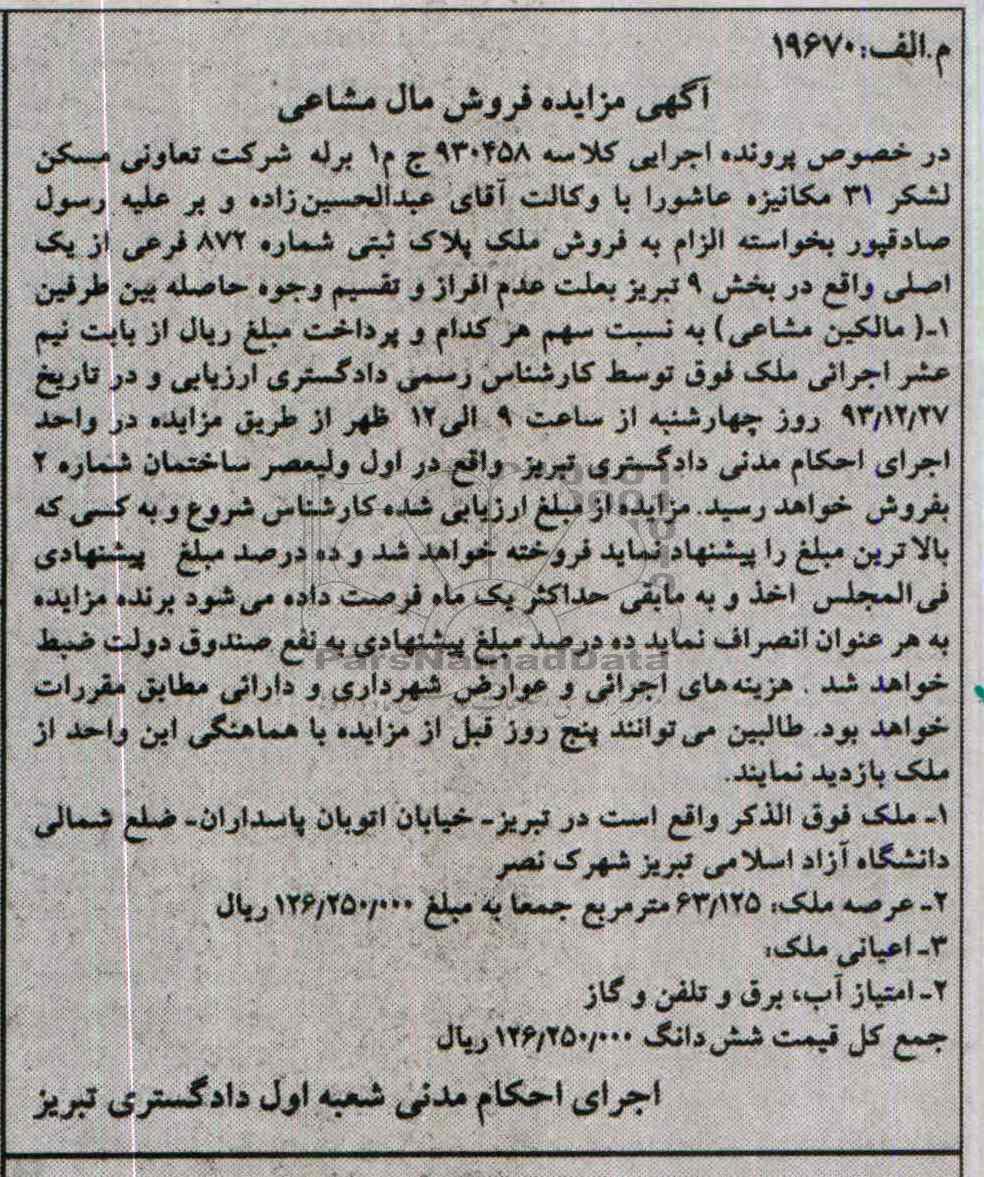 م.الف: ۱۹۶۷۰
آگهی مزایده فروش مال مشاعی
در خصوص پرونده اجرایی کلاسه ۹۳۰۴۵۸ ج م۱ برله شرکت تعاونی مسکن
لشکر ۳۱ مکانیزه عاشورا با وکالت آقای عبدالحسین‌زاده و بر علیه رسول
صادقپور بخواسته الزام به فروش ملک پلاک ثبتی شماره ۸۷۲ فرعی از یک
اصلی واقع در بخش ۹ تبریز بعلت عدم افراز و تقسیم وجوه حاصله بین طرفین
۱-( مالکین مشاعی) به نسبت سهم هر کدام و پرداخت مبلغ ریال از بابت نیم
عشر اجرائی ملک فوق توسط کارشناس رسمی دادگستری ارزیابی و در تاریخ
۹۳/۱۲/۲۷ روز چهارشنبه از ساعت ۹ الی ۱۲ ظهر از طریق مزایده در واحد
اجرای احکام مدنی دادگستری تبریز واقع در اول ولیعصر ساختمان شماره ۲
بفروش خواهد رسید. مزایده از مبلغ ارزیابی شده کارشناس شروع و به کسی که
بالاترین مبلغ را پیشنهاد نماید فروخته خواهد شد و ده درصد مبلغ پیشنهادی
فی‌المجلس اخذ و به مابقی حداکثر یک ماه فرصت داده می‌شود برنده مزایده
به هر عنوان انصراف نماید ده درصد مبلغ پیشنهادی به نفع صندوق دولت ضبط
ParsNamadData
خواهد شد . هزینه‌های اجرائی و عوارض شهرداری و دارائی مطابق مقررات
خواهد بود. طالبین می‌توانند پنج روز قبل از مزایده با هماهنگی این واحد از
ملک بازدید نمایند.
۱- ملک فوق الذکر واقع است در تبریز- خیابان اتوبان پاسداران- ضلع شمالی
دانشگاه آزاد اسلامی تبریز شهرک نصر
۲- عرصه ملک: ۶۳/۱۲۵ مترمربع جمعا به مبلغ ۱۲۶/۲۵۰/۰۰۰ ریال
۳- اعیانی ملک:
۲- امتیاز آب، برق و تلفن و گاز
جمع کل قیمت شش‌دانگ ۱۲۶/۲۵۰/۰۰۰ ریال
اجرای احکام مدنی شعبه اول دادگستری تبریز